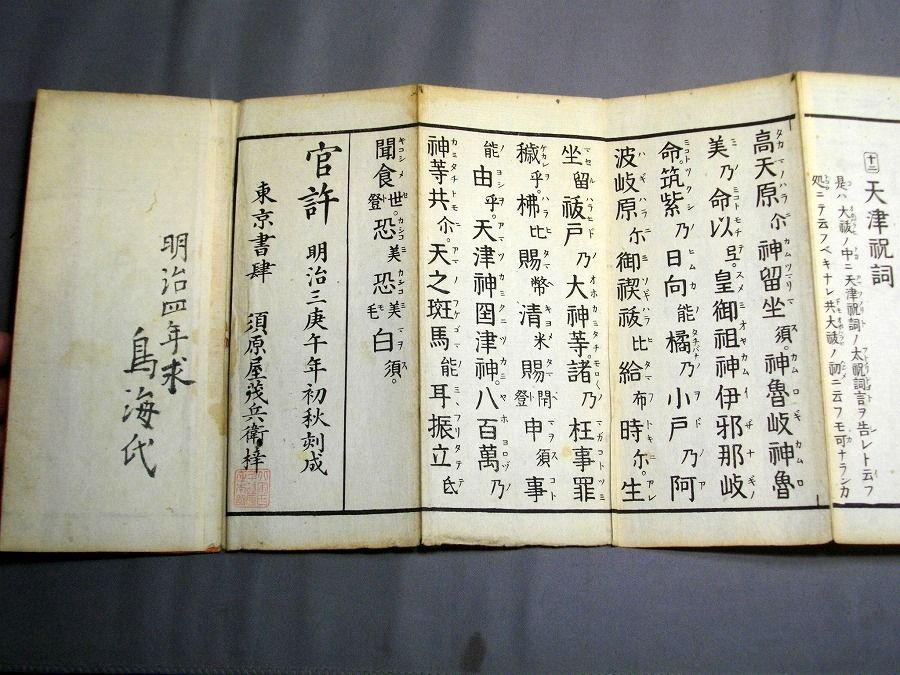 十二 天津祝詞
是ハ大祓ノ中ニ天津祝詞ノ太祝詞言ヲ告レト云フ
処ニテ云フベキナレ共大祓ノ初ニ云フモ可ナランカ
高天原尓神留坐須。神魯岐神魯
美乃命以弖。皇御祖神伊邪那岐
命。筑紫乃日向能橘乃小戸乃阿
波岐原尓御禊祓比給布時尓。生
坐留祓戸乃大神等。諸乃枉事罪
穢乎。払比賜幣清米賜閉登申須事
能由乎。天津神国津神。八百萬乃
神等共尓。天之斑馬能耳振立氐
聞食世登。恐美恐美毛白須。
官許 明治三庚午年初秋刻成
東京書肆 須原屋茂兵衛梓
明治四年求
鳥海氏